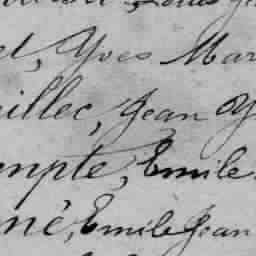 et, Yves Mar
illec, Jean Y
empte, Emile
mé, Emile Jean